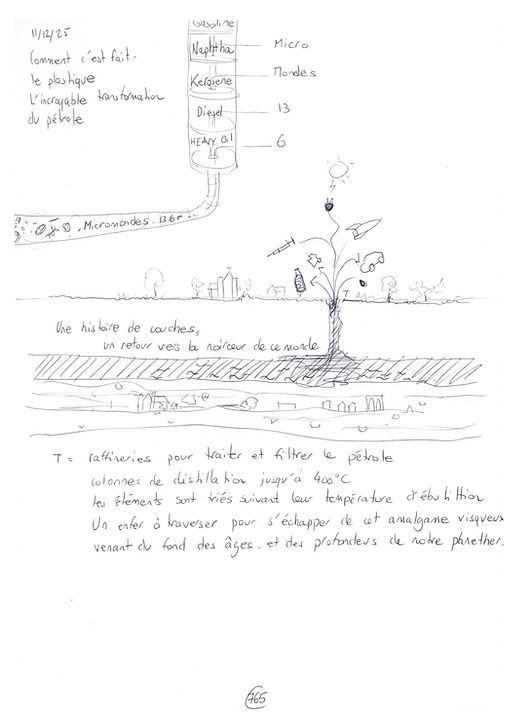 11/12/25
Comment c'est fait.
le plastique
L'incroyable transformation
du pétrole
Gasoline
Naphtha Micro
Kerosene Mondes
Diesel 13
HEAVY Oil 6
Micromondes. 136
T
Une histoire de couches,
un retour vers la noirceur de ce monde
T = raffineries pour traiter et filtrer le pétrole
colonnes de distillation jusqu'à 400°C
les éléments sont triés suivant leur température d'ébullition
Un enfer à traverser pour s'échapper de cet amalgame visqueux
venant du fond des âges. et des profondeurs de notre planether.
765